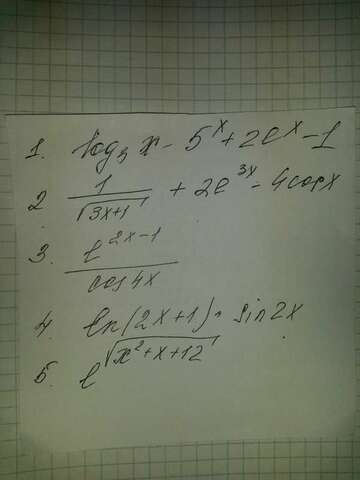 1. log₃ x - 5^x + 2e^x - 1
2 1/√(3x+1) + 2e^(3x) - 4cosx
3. e^(2x-1)/cos4x
4. ln(2x+1) · sin2x
5. e^√(x²+x+12)